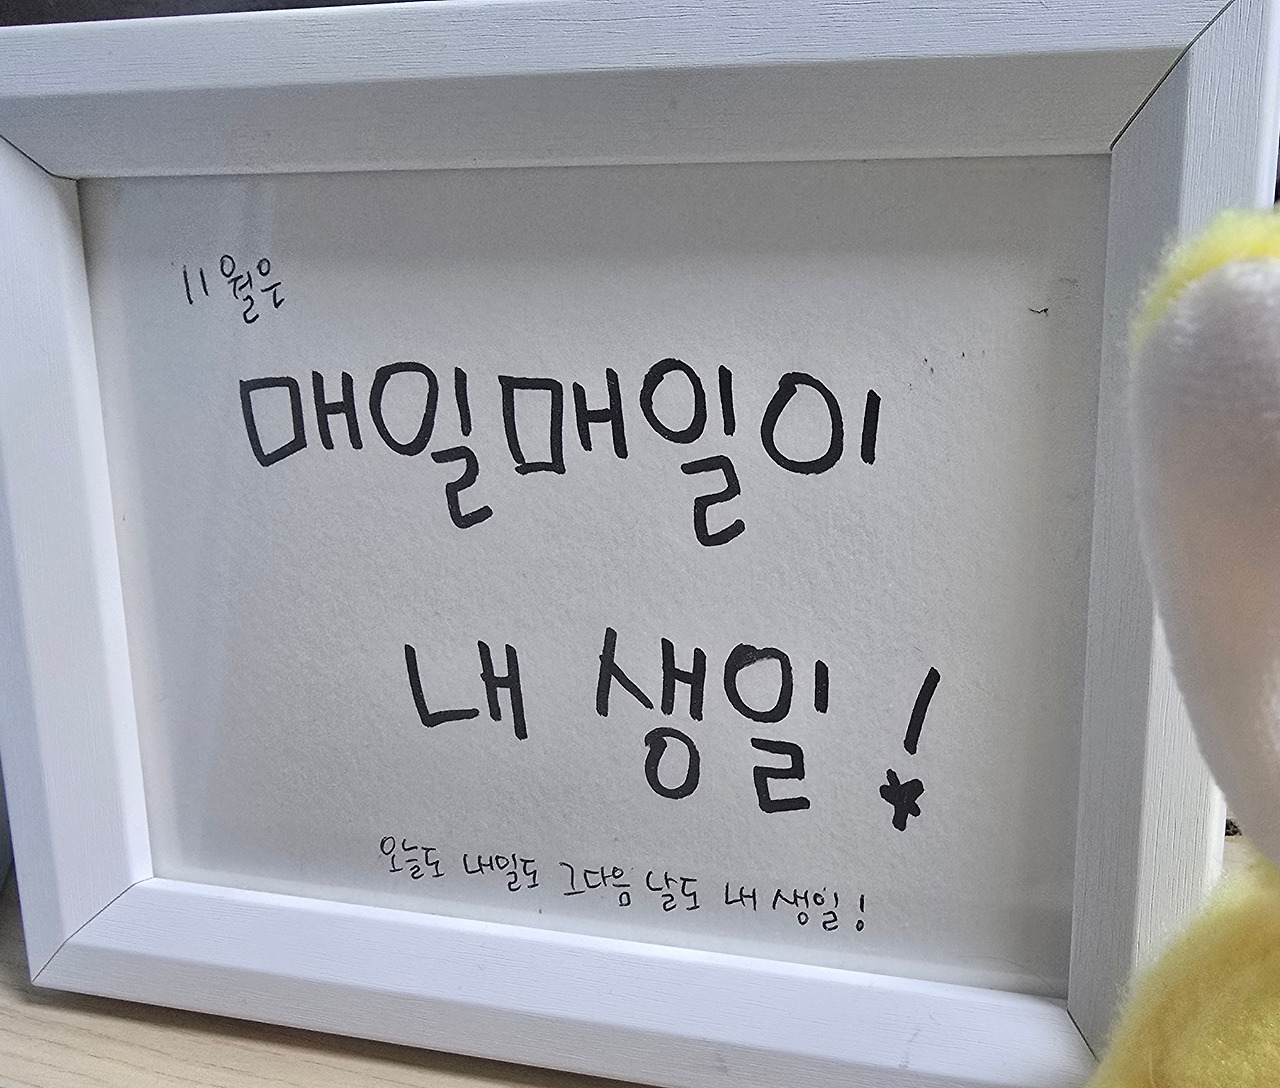 11월은
매일매일이
내 생일!
오늘도 내일도 그다음 날도 내 생일!